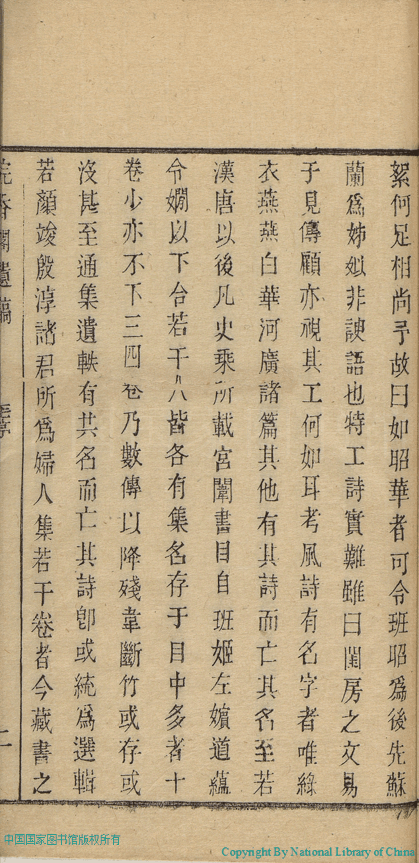 絮何足相尚予故曰如昭華者可令班昭爲後先蘇
蘭爲姊姒非諛語也特工詩實難雖曰閨房之文易
于見傳顧亦視其工何如耳考風詩有名字者唯綠
衣燕燕白華河廣諸篇其他有其詩而亡其名至若
漢唐以後凡史乘所載宮闈書目自班姬左嬪道蘊
令嫺以下合若干人皆各有集名存于目中多者十
卷少亦不下三四卷乃數傳以降殘韋斷竹或存或
沒甚至通集遺軼有其名而亡其詩卽或統爲選輯
若顏竣殷淳諸君所爲婦人集若干卷者今藏書之
二
中国国家图书馆版权所有
Copyright By National Library of China